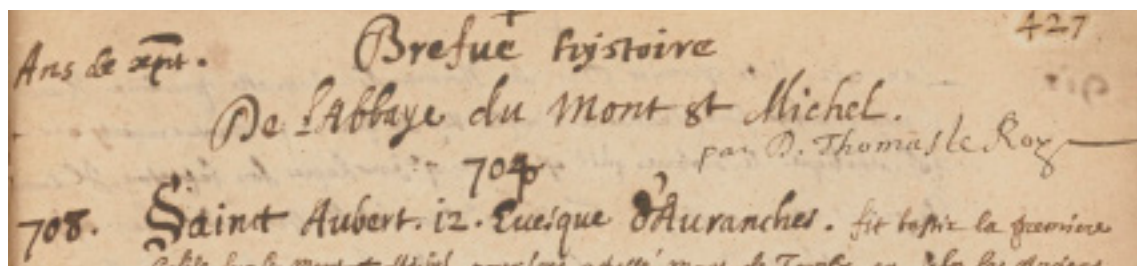 427
Ans de xp̄nt. Brefue hystoire
De l'Abbaye du Mont st Michel.
par D. Thomas le Roy
704
708. Sainct Aubert. 12. Euesque d'Auranches. fit bastir la premiere